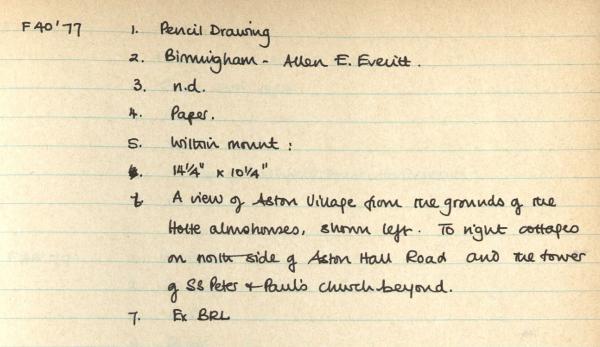 F40'77 1. Pencil Drawing
2. Birmingham - Allen E. Everitt.
3. n.d.
4. Paper.
5. Within mount:
6. 14¼" x 10¼"
A view of Aston Village from the grounds of the
Holte almshouses, shown left. To right cottages
on north side of Aston Hall Road and the tower
of SS Peter + Paul's church beyond.
7. Ex BRL